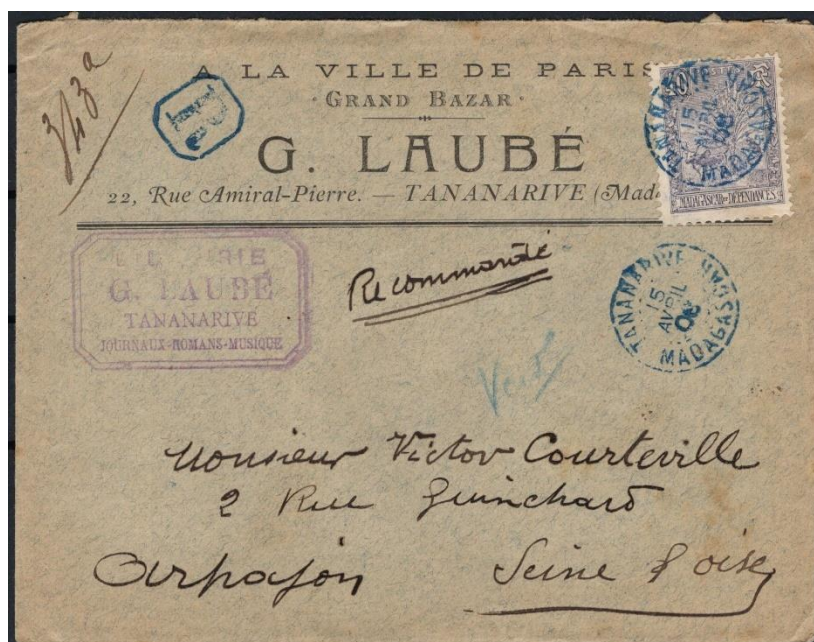 A LA VILLE DE PARIS
GRAND BAZAR
G. LAUBÉ
22, Rue Amiral-Pierre. — TANANARIVE
R
MADAGASCAR et DÉPENDANCES
TANANARIVE
15
AVRIL
MADAGASCAR
G. LAUBÉ
TANANARIVE
JOURNAUX-ROMANS-MUSIQUE
Recommandé
TANANARIVE
15
AVRIL
MADAGASCAR
Monsieur Victor Courteville
2 Rue Guinchard
Arpajon Seine & oise